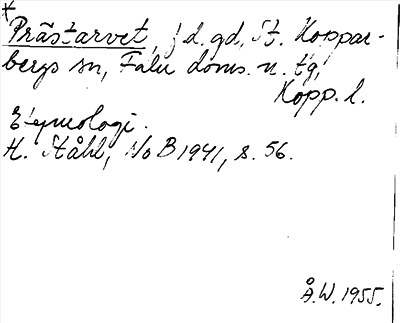 *
Prästarvet, f.d. gd, St. Koppar-
bergs sn, Falu doms. n. tg,
Kopp. l.
Etymologi.
H. Ståhl, NoB 1941, s. 56.
Å.W. 1955.